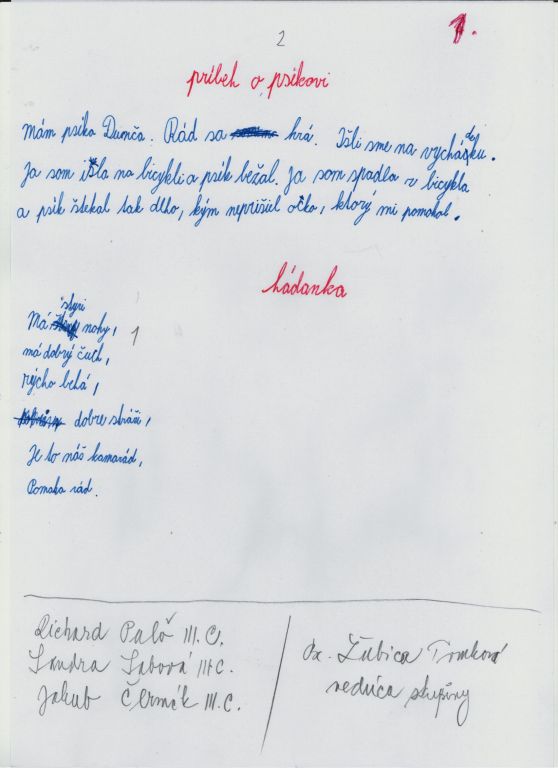 2
1.
príbeh o psíkovi
Mám psíka Dunča. Rád sa hrá. Išli sme na vychádzku.
Ja som išla na bicykli a psík bežal. Ja som spadla z bicykla
a psík štekal tak dlho, kým neprišiel ocko, ktorý mi pomohol.
hádanka
Má štyri nohy, 1
má dobrý čuch,
rýcho behá,
dobre stráži,
Je to náš kamarád,
Pomaha rád.
Richard Palo III. C.
Sandra Sabová III. C.
Jakub Čermák III. C.
Ľubica Tomková
vedúca skupiny